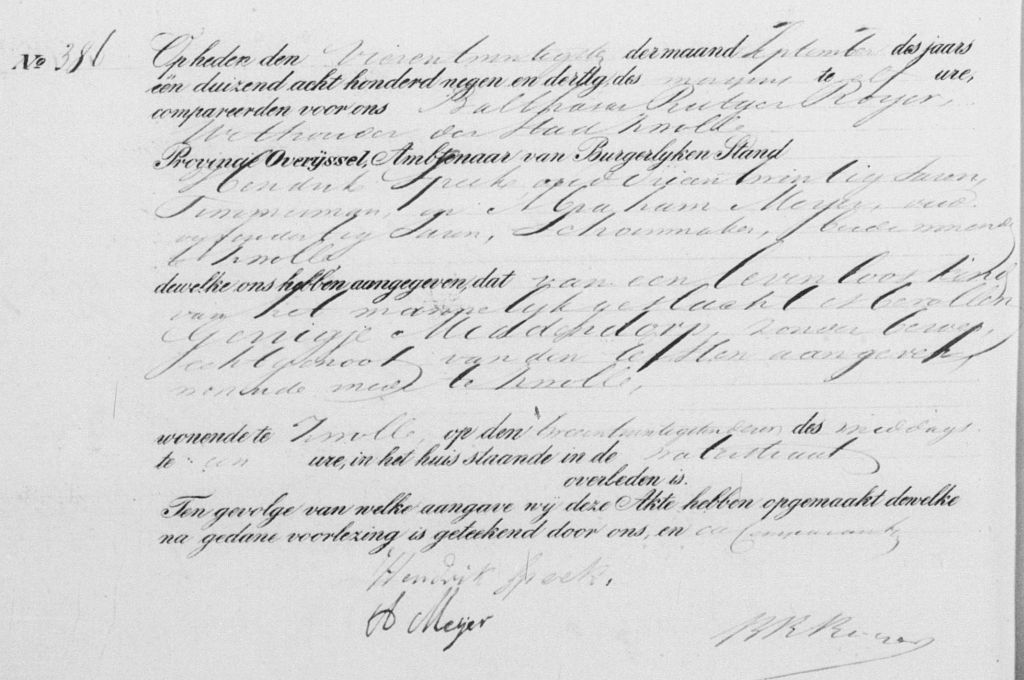 No 386
Op heden den vierentwintigsten der maand September des jaars
één duizend acht honderd negen en dertig, des morgens te elf ure,
compareerden voor ons Balthasar Rutger Royer,
Wethouder der Stad Zwolle
Provincie Overijssel, Ambtenaar van Burgerlyken Stand
Hendrik Speek oud vierentwintig Jaren,
Timmerman, en Abraham Meyer, oud
vyfendertig Jaren, Schoenmaker, beide wonende
te Zwolle
dewelke ons hebben aangegeven, dat van een levenloos kind
van het mannelijk geslacht is bevallen
Gerrigje Middendorp, zonder beroep,
echtgenoot van den eersten aangever,
wonende mede te Zwolle,
wonende te Zwolle, op den drieentwintigsten dezer des middags
te een ure, in het huis staande in de Waterstraat
overleden is.
Ten gevolge van welke aangave wij deze Akte hebben opgemaakt dewelke
na gedane voorlezing is geteekend door ons, en de Comparanten
Hendrik Speek.
A Meijer
B R Royer